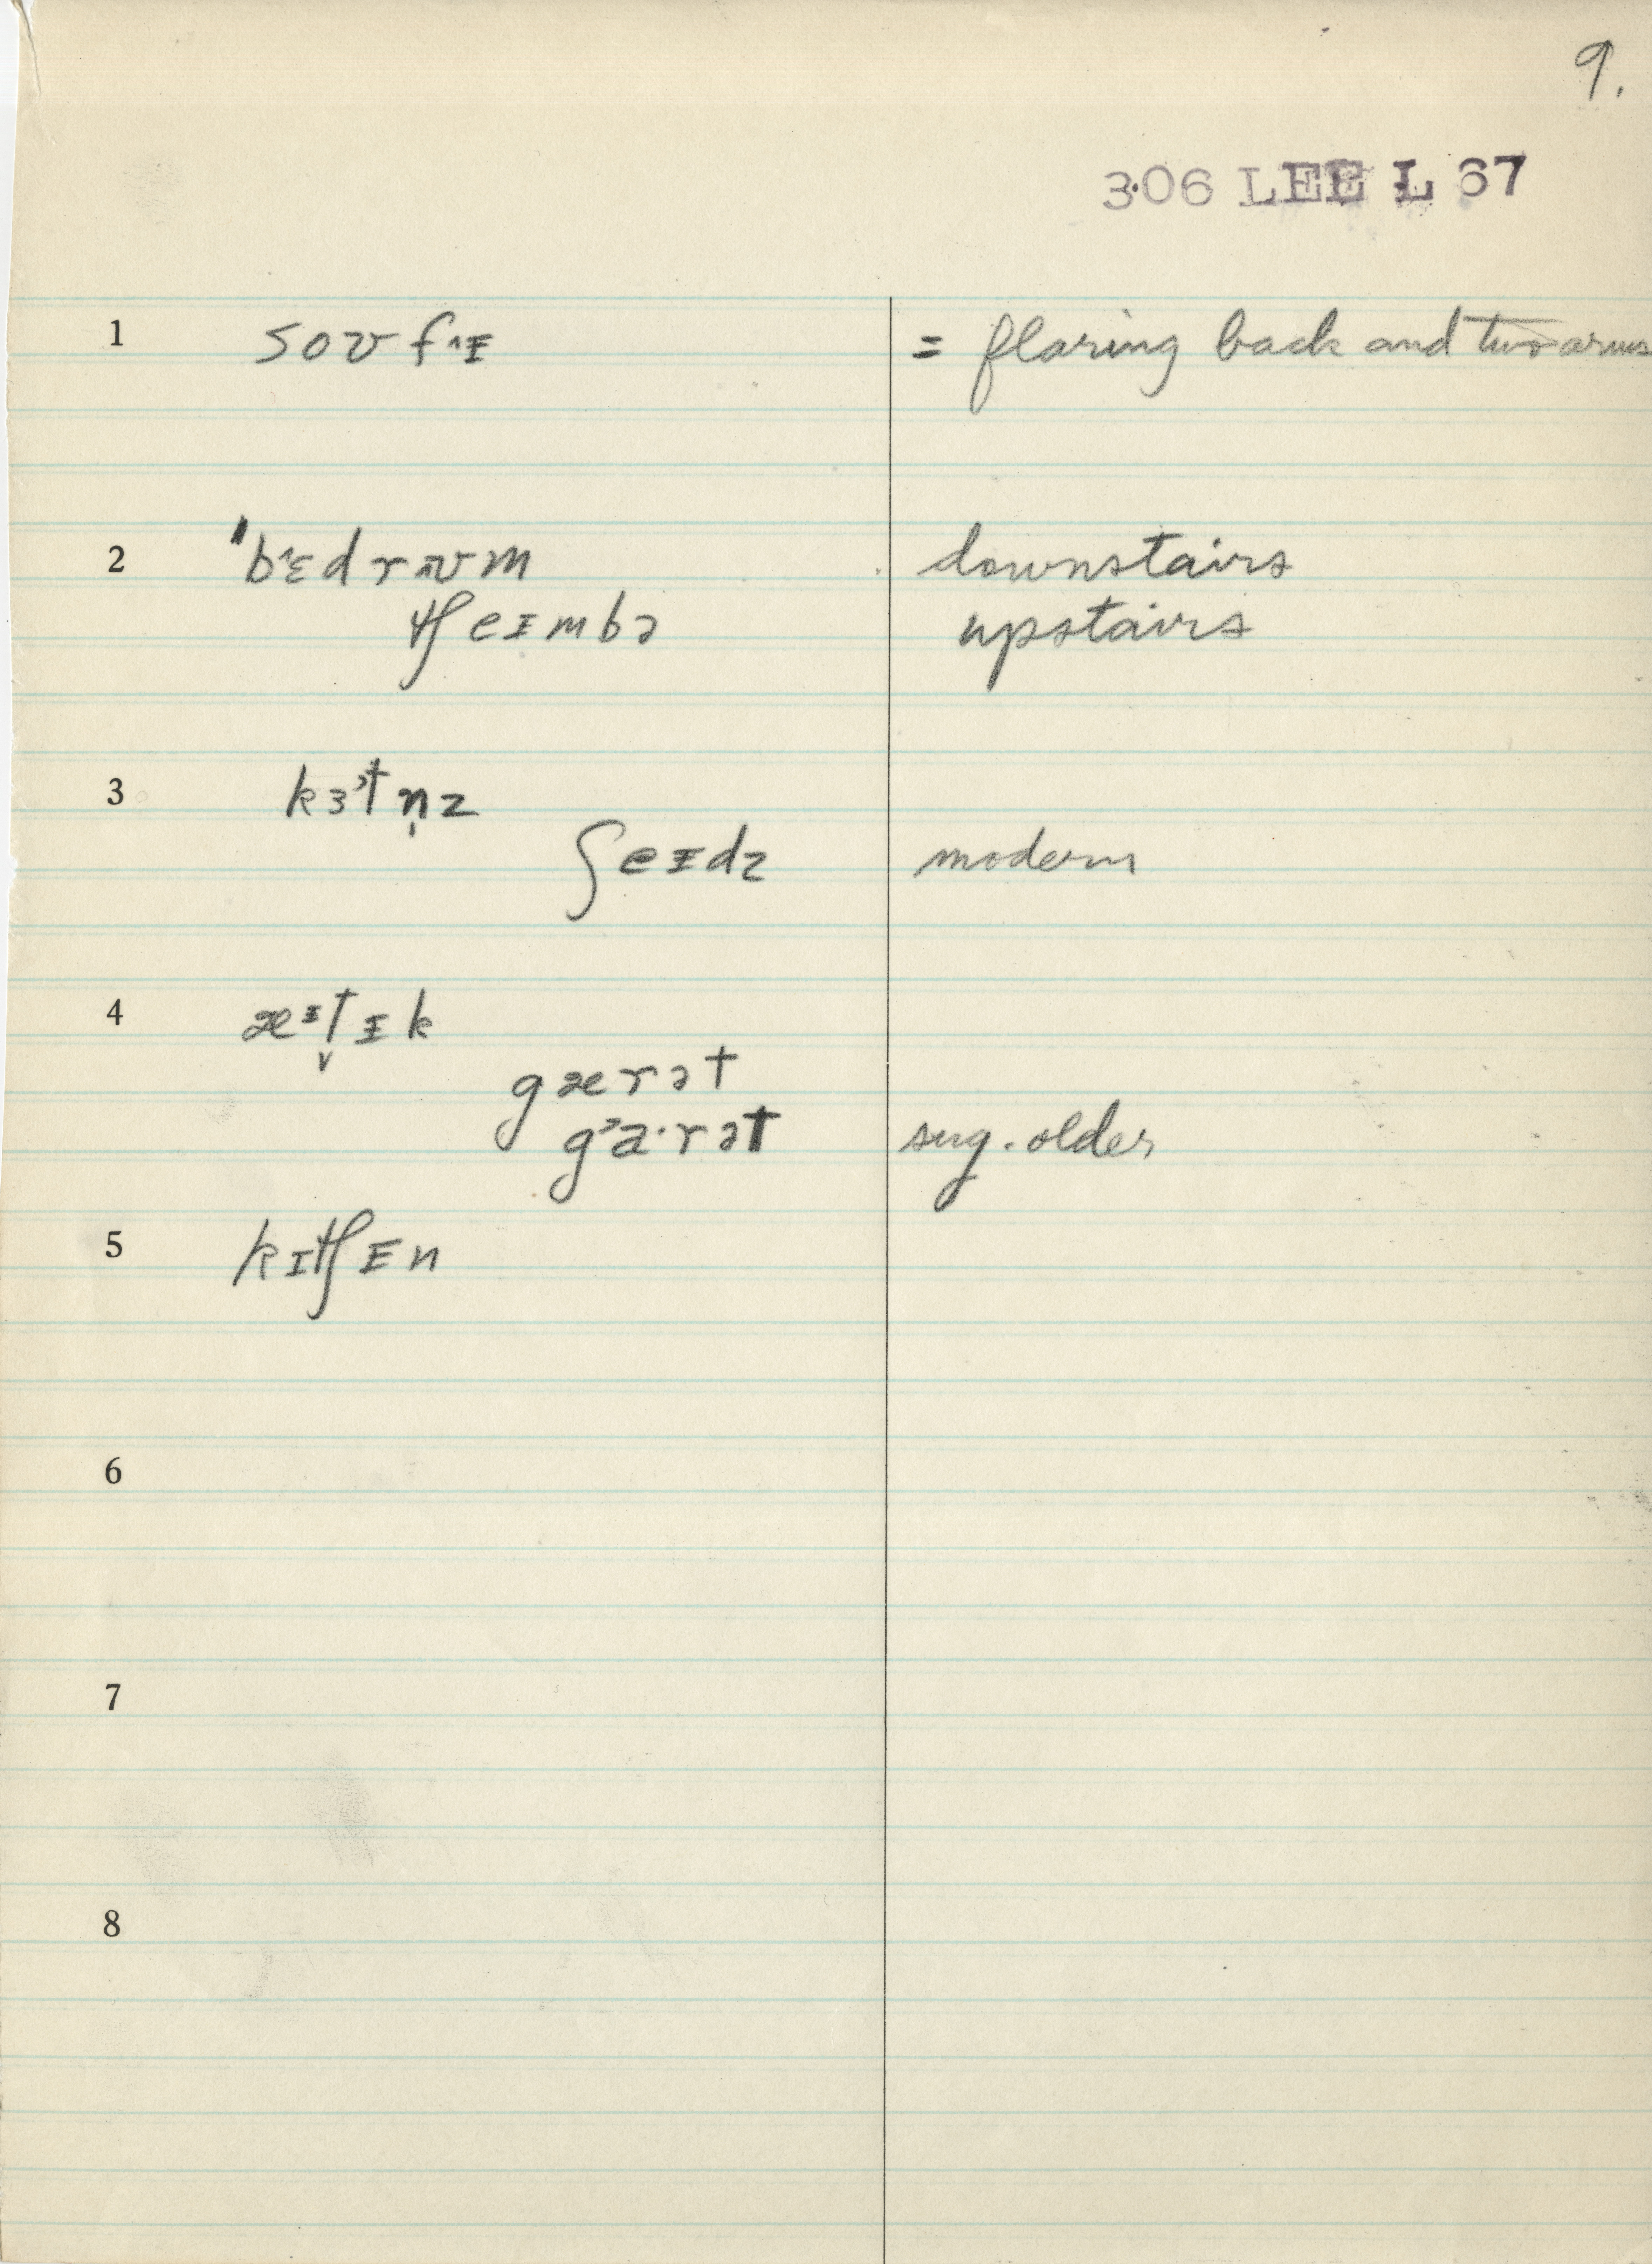 9.
306 LEE L 67
1 soʊfᵻ = flaring back and two arms
2 ˈbɛdrʊm downstairs
tʃeɪmbə upstairs
3 kɜtn̩z
ʃeɪdz modern
4 æᵻt̬ᵻk
gærət
gᵊa·rət sug. older
5 kɪtʃᵻn
6
7
8